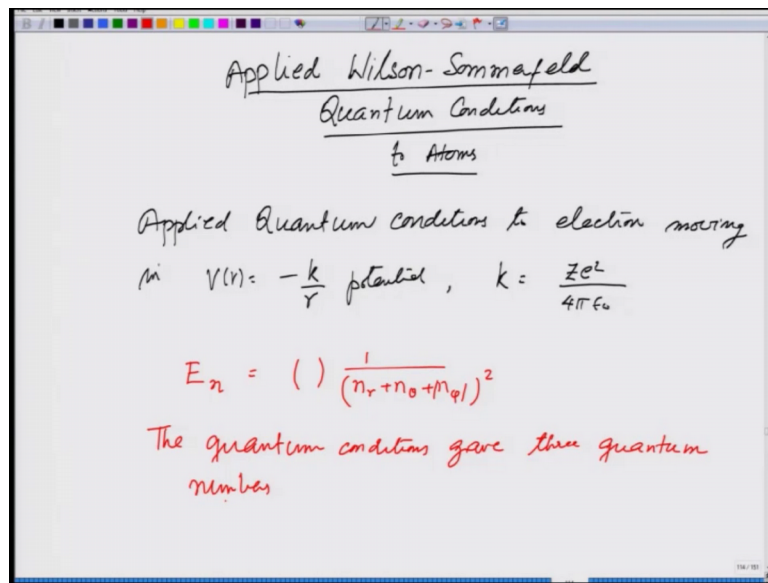 Applied Wilson-Sommerfeld
Quantum Conditions
to Atoms
Applied Quantum conditions to electron moving
in V(r) = -k/r potential, k = Ze²/4πε₀
Eₙ = ( ) 1/(nᵣ+n_θ+|n_φ|)²
The quantum conditions gave three quantum
numbers